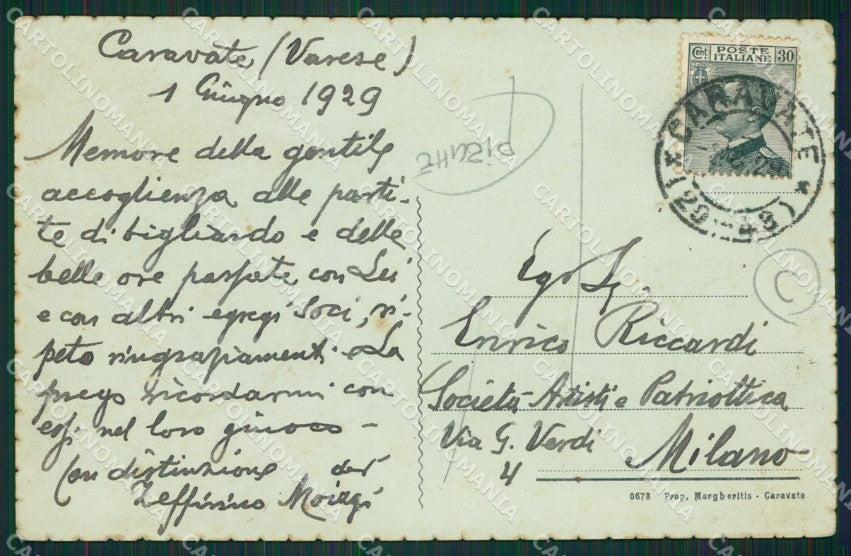 Caravate (Varese)
1 Giugno 1929
Memore della gentile
accoglienza alle parti-
te di bigliardo e delle
belle ore passate con Lei
e con altri egregi Soci, ri-
peto ringraziamenti e La
prego ricordarmi con
essi nel loro giuoco -
Con distinzione
Zeffirino
POSTE
ITALIANE
Cent 30
CARAVATE
Egr. Sig.
Enrico Riccardi
Società Artisti e Patriottica
Via G. Verdi
4 Milano
0678 Prop. Margheritis - Caravate
C
CARTOLINOMANIA